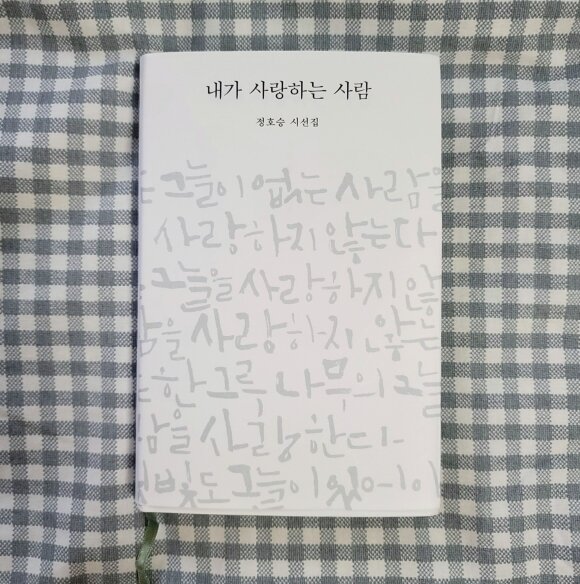 내가 사랑하는 사람
정호승 시선집
는 그늘이 없는 사람을
사랑하지 않는다
는 그늘을 사랑하지 않
사람을 사랑하지 않는
는 한 그루 나무의 그늘
사람을 사랑한다
햇빛도 그늘이 있어야